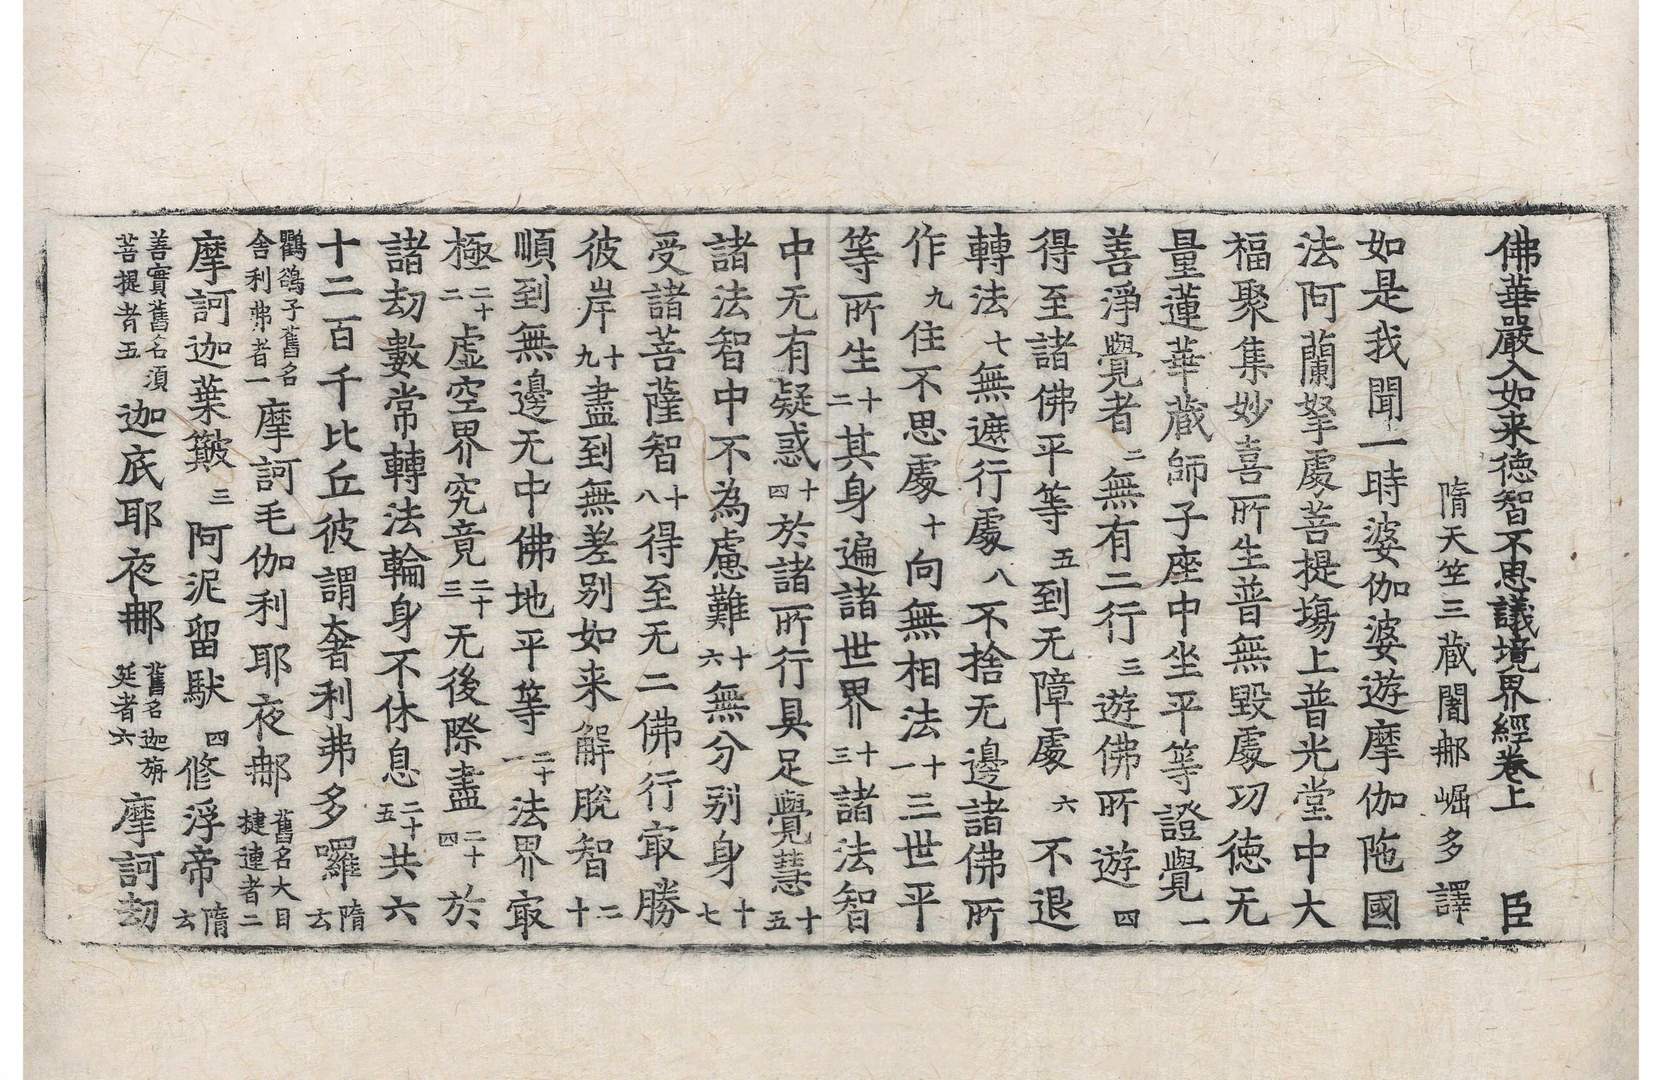 佛華嚴入如来德智不思議境界經卷上　臣
隋天竺三藏闍那崛多譯
如是我聞一時婆伽婆遊摩伽陁國
法阿蘭拏處菩提塲上普光堂中大
福聚集妙喜所生普無毀處功德无
量蓮華藏師子座中坐平等證覺一
善淨覺者二無有二行三遊佛所遊四
得至諸佛平等五到无障處六不退
轉法七無遮行處八不捨无邊諸佛所
作九住不思處十向無相法十一三世平
等所生十二其身遍諸世界十三諸法智
中无有疑惑十四於諸所行具足覺慧十五
諸法智中不為慮難十六無分别身十七
受諸菩薩智十八得至无二佛行㝡勝
彼岸十九盡到無差别如来解脫智二十
順到無邊无中佛地平等二十一法界㝡
極二十二虛空界究竟二十三无後際盡二十四於
諸劫數常轉法輪身不休息二十五共六
十二百千比丘彼謂奢利弗多囉隋玄
鸜鵒子舊名舍利弗者一摩訶毛伽利耶夜那舊名大目揵連者二
摩訶迦葉簸三阿泥留馱四修浮帝隋玄
善實舊名須菩提者五迦底耶夜那舊名迦旃延者六摩訶劫